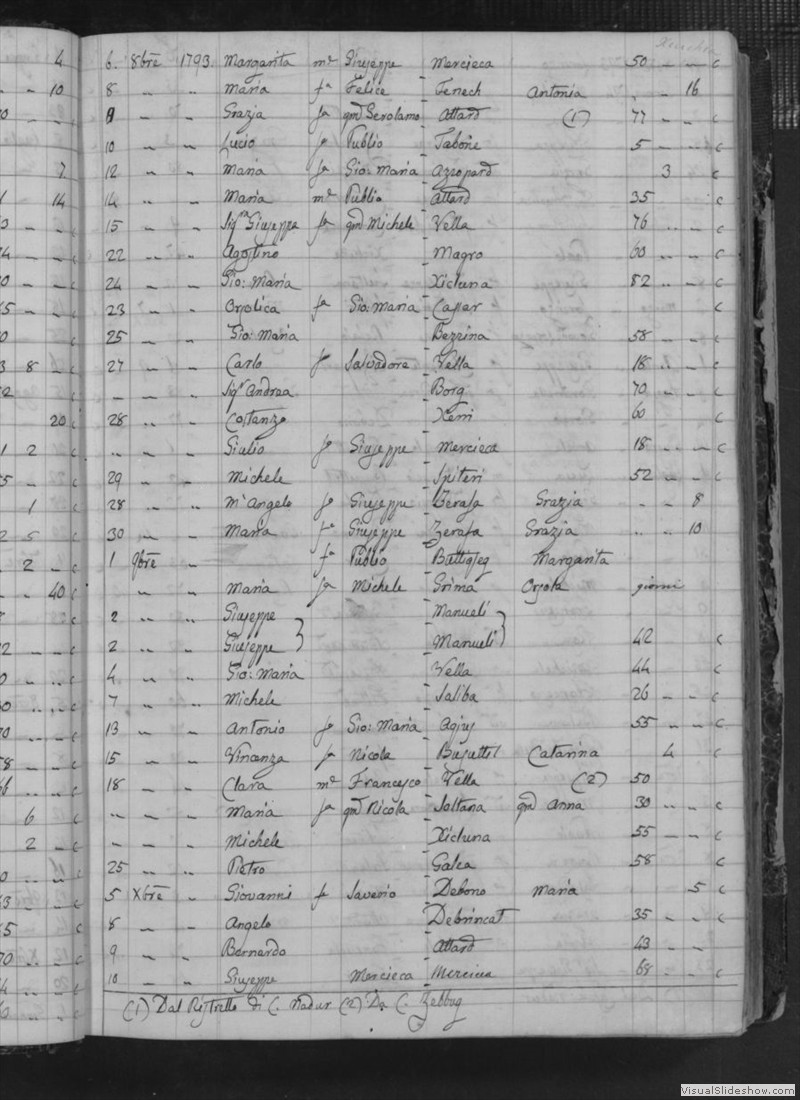 4 6. 8bre 1793. Margarita me Giuseppe Mercieca 50 — — c
10 8 .. .. Maria fa Felice Fenech Antonia . - 16
9 .. .. Grazja fa qm Gerolamo Attard (1) 77 — — c
10 .. .. Lucio fo Publio Tabone 5 — — c
7 12 .. .. Maria fa Gio: Maria Azzopard 3 c
14 14 .. .. Maria me Publio Attard 35 c
15 .. .. Sigra Giuseppa fa qm Michele Vella 76 .. — c
22 .. .. Agostino Magro 60 .. — c
24 .. .. Gio: Maria Xicluna 82 .. — c
23 .. .. Orsolica fa Gio: Maria Casar c
25 .. .. Gio: Maria Bezzina 58 — — c
8 27 .. .. Carlo fo Salvadore Vella 18 .. — c
— .. .. Sigr Andrea Borg 70 — — c
20 c 28 .. .. Costanzo Xerri 60 c
2 c .. .. .. Giulio fo Giuseppe Mercieca 18 .. — c
c 29 .. .. Michele Spiteri 52 — — c
1 c 28 .. .. Mc Angelo fo Giuseppe Zerafa Grazja — — 8
5 c 30 .. .. Maria fa Giuseppe Zerafa Grazia .. .. 10
2 c 1 9bre .. fa Publio Buttigieg Margarita
40 c .. .. Maria fa Michele Grima Orsola giorni
2 .. .. Giuseppe } Manueli }
c 2 .. .. Giuseppe } Manueli } 42 c
c 4 .. .. Gio: Maria Vella 44 c
c 7 .. .. Michele Saliba 26 — — c
c 13 .. .. Antonio fo Gio: Maria Agius 55 — — c
c 15 .. .. Vincenza fa Nicola Busuttil Catarina 4 c
c 18 .. .. Clara me Francesco Vella (2) 50
6 c .. .. .. Maria fa qm Nicola Soltana qm Anna 30 .. .. c
2 c — .. .. Michele Xicluna 55 — — c
c 25 .. .. Pietro Galea 58 c
c 5 Xbre .. Giovanni fo Saverio Debono Maria 5 c
c 8 .. .. Angelo Debrincat 35 .. — c
c 9 .. .. Bernardo Attard 43 — —
c 10 .. .. Giuseppe Mercieca Mercieca 68 — — c
(1) Dal Ristretto di C. Nadur (2) Da C. Zebbug
VisualSlideshow.com